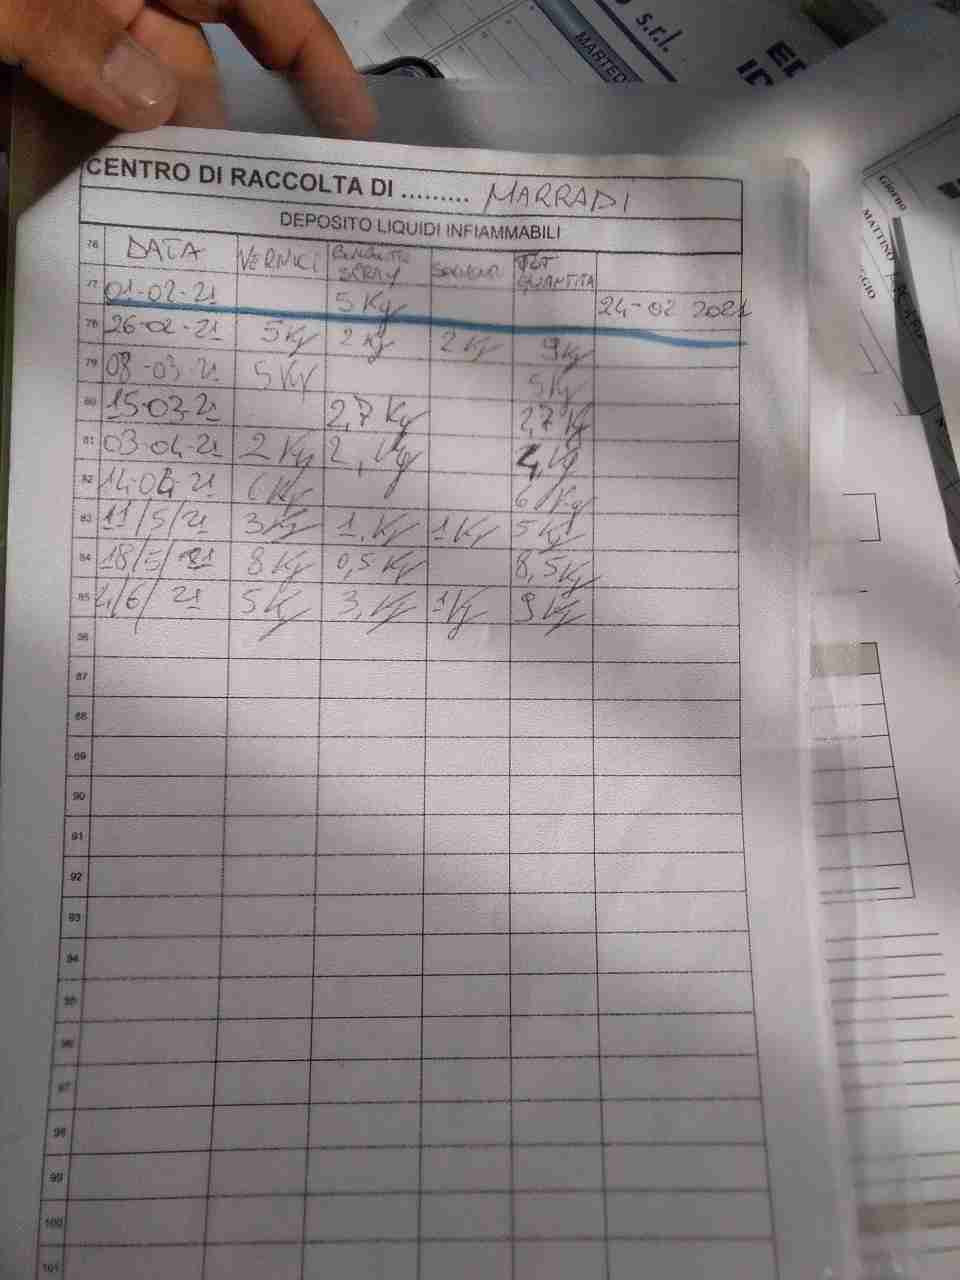 s.r.l.
MARTED
CENTRO DI RACCOLTA DI ......... MARRADI
DEPOSITO LIQUIDI INFIAMMABILI
76 DATA VERNICI BOMBOLETTE SPRAY SOLVENTI TOT QUANTITA
77 01-02-21 5 Kg 24-02 2021
78 26-02-21 5 Kg 2 Kg 2 Kg 9 Kg
79 08-03-21 5 Kg 5 Kg
80 15-03-21 2,7 Kg 2,7 Kg
81 03-04-21 2 Kg 2, Kg 4, Kg
82 14-04-21 6 Kg 6 Kg
83 11/5/21 3 Kg 1, Kg 1 Kg 5 Kg
84 18/5/21 8 Kg 0,5 Kg 8,5 Kg
85 4/6/21 5 Kg 3, Kg 1 Kg 9 Kg
86
87
88
89
90
91
92
93
94
95
96
97
98
99
100
101
Giorno
MATTINO